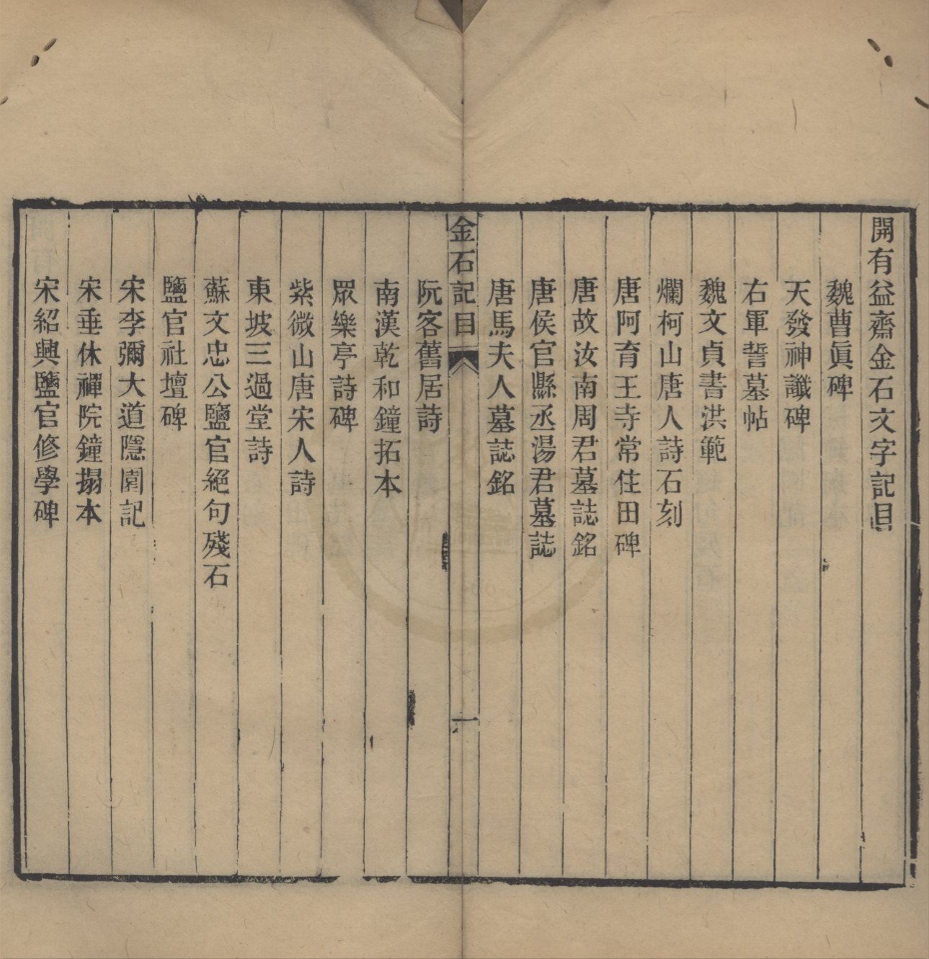 開有益齋金石文字記目
魏曹眞碑
天發神讖碑
右軍誓墓帖
魏文貞書洪範
爛柯山唐人詩石刻
唐阿育王寺常住田碑
唐故汝南周君墓誌銘
唐侯官縣丞湯君墓誌
唐馬夫人墓誌銘
金石記目
一
阮客舊居詩
南漢乾和鐘拓本
眾樂亭詩碑
紫微山唐宋人詩
東坡三過堂詩
蘇文忠公鹽官絕句殘石
鹽官社壇碑
宋李彌大道隱園記
宋垂休禪院鐘搨本
宋紹興鹽官修學碑